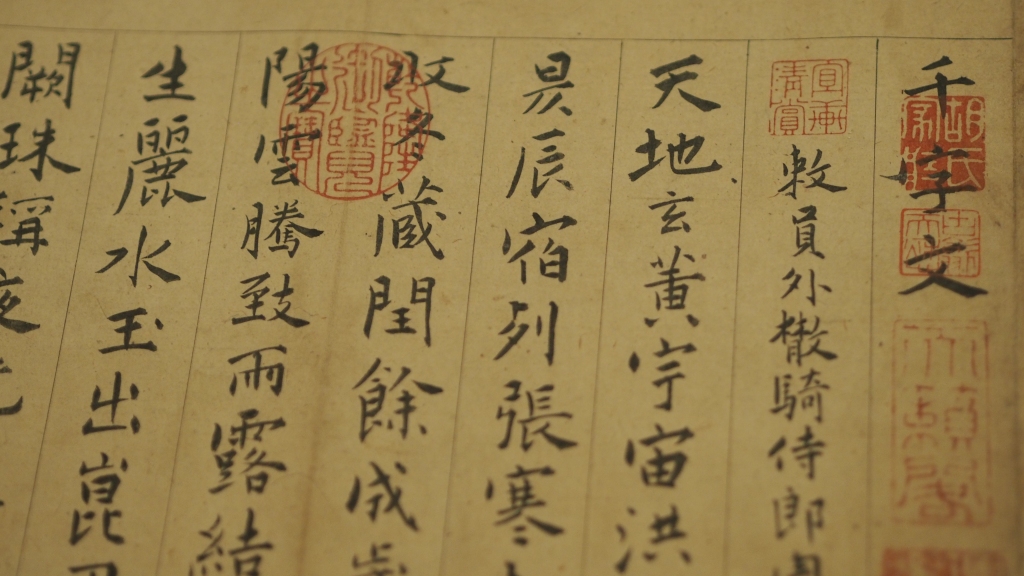 千字文
敕員外散騎侍郎
天地玄黃宇宙洪
昃辰宿列張寒
收冬蔵閏餘成
陽雲騰致雨露結
生麗水玉出崑
闕珠稱夜